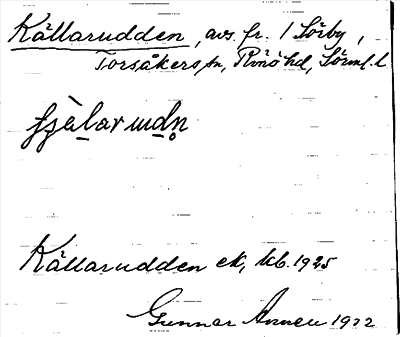 Källarudden, avs. fr. 1 Sörby,
Torsåkers sn, Rönö hd, Sörml. l
Källarudden ek, kb. 1925
Gunnar 1922